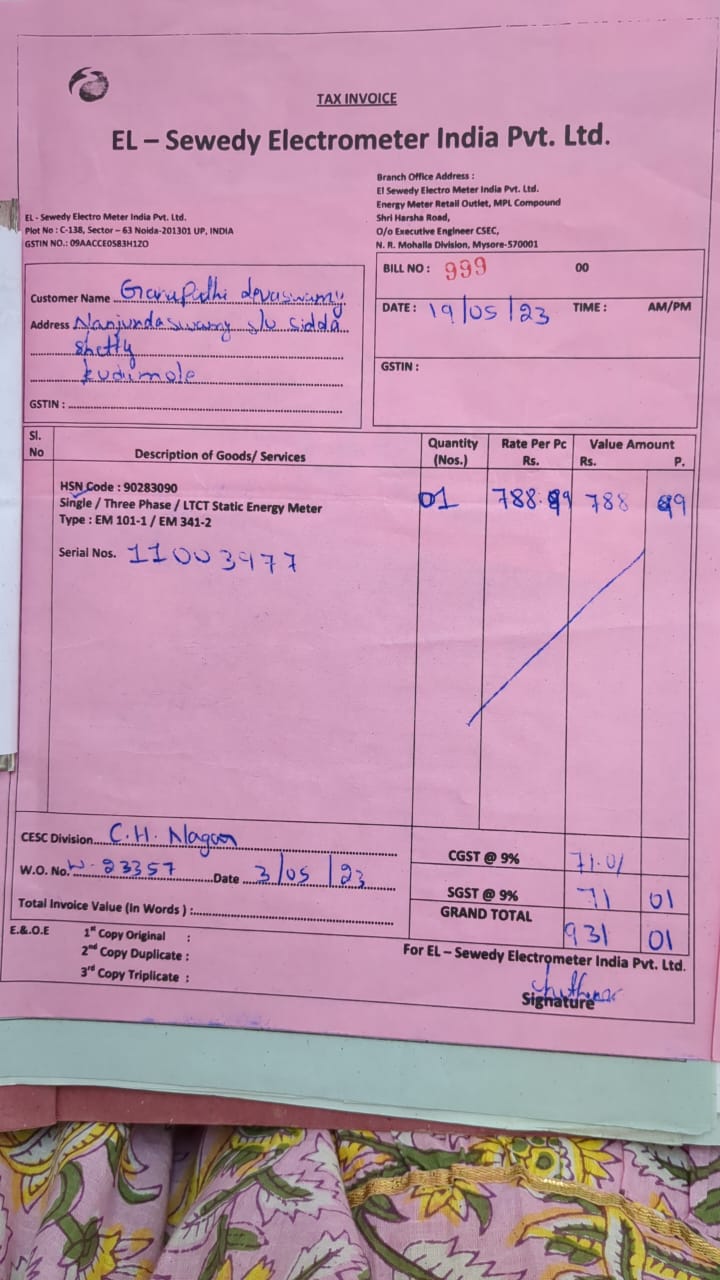 TAX INVOICE
EL – Sewedy Electrometer India Pvt. Ltd.
EL - Sewedy Electro Meter India Pvt. Ltd.
Plot No : C-138, Sector – 63 Noida-201301 UP, INDIA
GSTIN NO.: 09AACCE0583H1ZO
Branch Office Address :
El Sewedy Electro Meter India Pvt. Ltd.
Energy Meter Retail Outlet, MPL Compound
Shri Harsha Road,
O/o Executive Engineer CSEC,
N. R. Mohalla Division, Mysore-570001
Customer Name devaswamy
Address Nanjundaswamy s/o Sidda
Shetty
kudimole
GSTIN :
BILL NO : 999 00
DATE : 19/05/23 TIME : AM/PM
GSTIN :
Sl. No Description of Goods/ Services Quantity (Nos.) Rate Per Pc Rs. Value Amount Rs. P.
HSN Code : 90283090
Single / Three Phase / LTCT Static Energy Meter
Type : EM 101-1 / EM 341-2
01 788.99 788 99
Serial Nos. 11003977
CESC Division C.H. Nagar
W.O. No. W-23357 Date 3/05/23
Total Invoice Value (In Words) :
CGST @ 9% 71.01
SGST @ 9% 71 01
GRAND TOTAL 931 01
E.&.O.E 1st Copy Original :
2nd Copy Duplicate :
3rd Copy Triplicate :
For EL – Sewedy Electrometer India Pvt. Ltd.
Signature